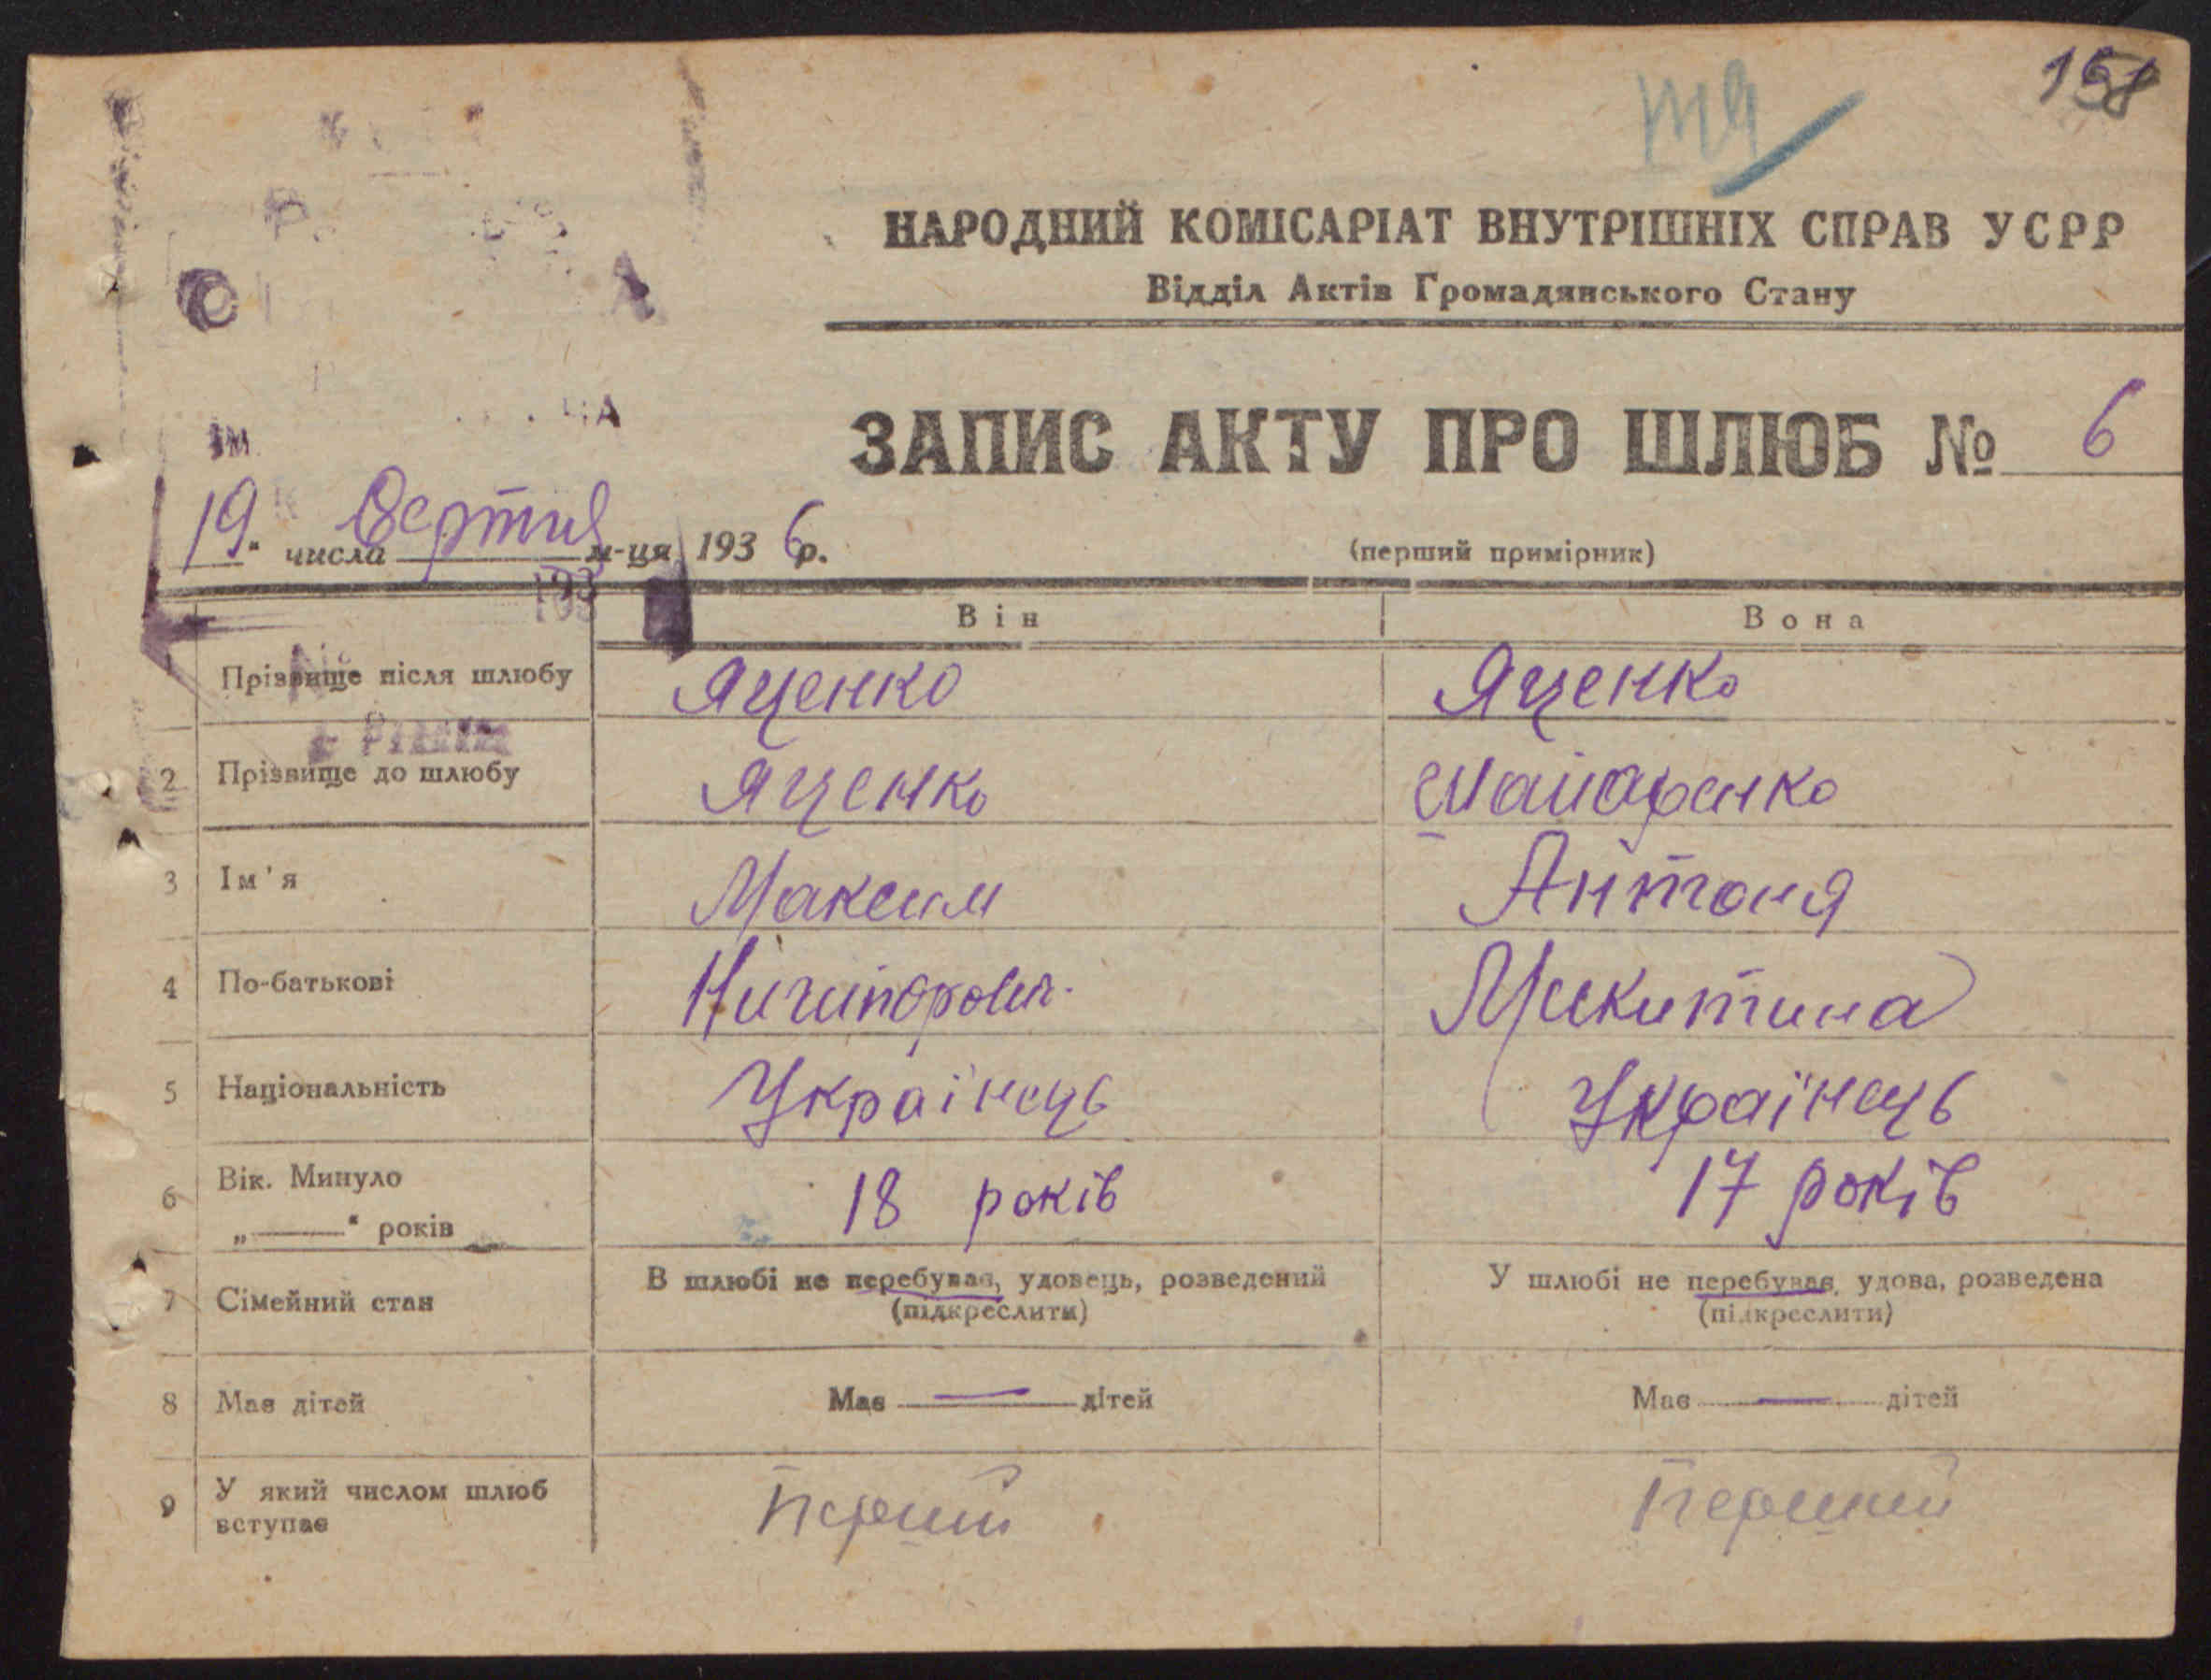 158
НАРОДНИЙ КОМІСАРІАТ ВНУТРІШНІХ СПРАВ УСРР
Відділ Актів Громадянського Стану
ЗАПИС АКТУ ПРО ШЛЮБ № 6
19 " числа м-ця 1936 р.
(перший примірник)
Він Вона
Прізвище після шлюбу Яценко Яценко
2 Прізвище до шлюбу Яценко
3 Ім'я Максим Антоня
4 По-батькові Ничипорович Микитина
5 Національність Українець Українець
6 Вік. Минуло
„ " років 18 років 17 років
7 Сімейний стан В шлюбі не перебуває, удовець, розведений У шлюбі не перебуває, удова, розведена
(підкреслити) (підкреслити)
8 Має дітей Має — дітей Має — дітей
9 У який числом шлюб
вступає Перший Перший